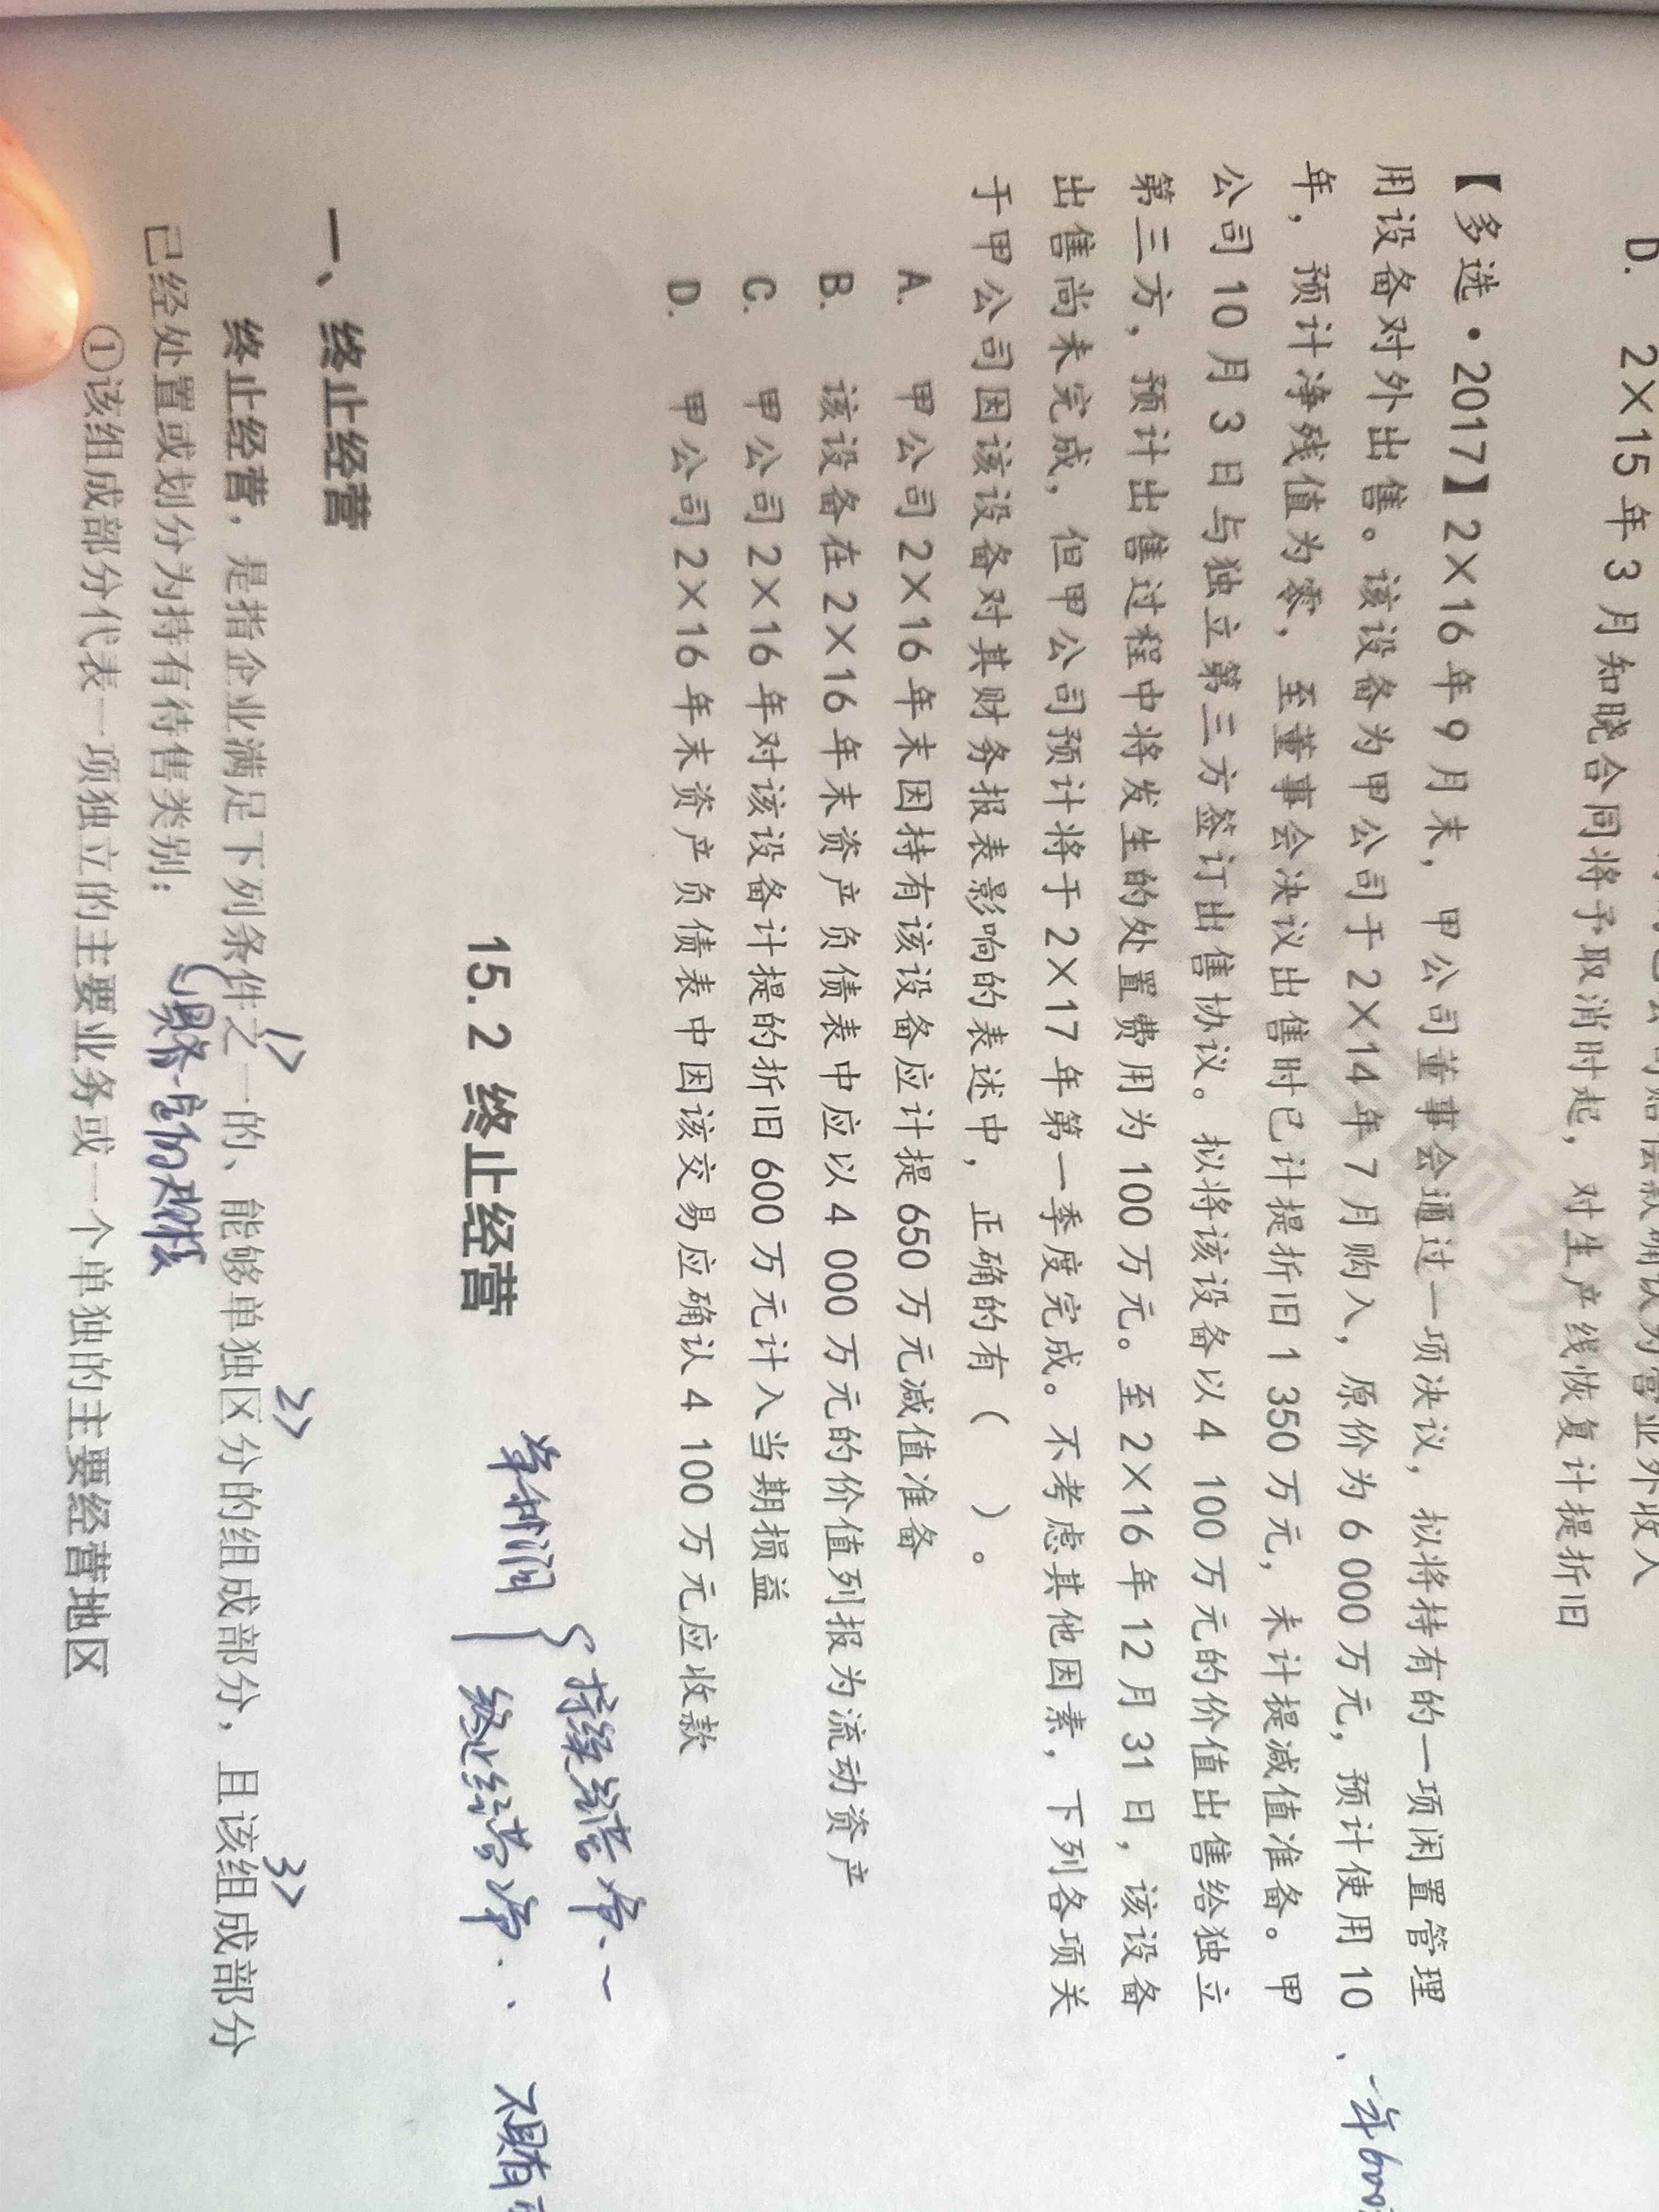 为营业外收入
D. 2×15年3月知晓合同将予取消时起，对生产线恢复计提折旧
【多选·2017】2×16年9月末，甲公司董事会通过一项决议，拟将持有的一项闲置管理
用设备对外出售。该设备为甲公司于2×14年7月购入，原价为6 000万元，预计使用10
年，预计净残值为零，至董事会决议出售时已计提折旧1 350万元，未计提减值准备。甲
公司10月3日与独立第三方签订出售协议。拟将该设备以4 100万元的价值出售给独立
第三方，预计出售过程中将发生的处置费用为100万元。至2×16年12月31日，该设备
出售尚未完成，但甲公司预计将于2×17年第一季度完成。不考虑其他因素，下列各项关
于甲公司因该设备对其财务报表影响的表述中，正确的有（ ）。
A. 甲公司2×16年末因持有该设备应计提650万元减值准备
B. 该设备在2×16年末资产负债表中应以4 000万元的价值列报为流动资产
C. 甲公司2×16年对该设备计提的折旧600万元计入当期损益
D. 甲公司2×16年末资产负债表中因该交易应确认4 100万元应收款
一年600
持续经营净
净利润
终止经营净
15.2 终止经营
一、终止经营
1> 2> 3>
终止经营，是指企业满足下列条件之一的、能够单独区分的组成部分，且该组成部分
已经处置或划分为持有待售类别：
具备一定的规模
①该组成部分代表一项独立的主要业务或一个单独的主要经营地区